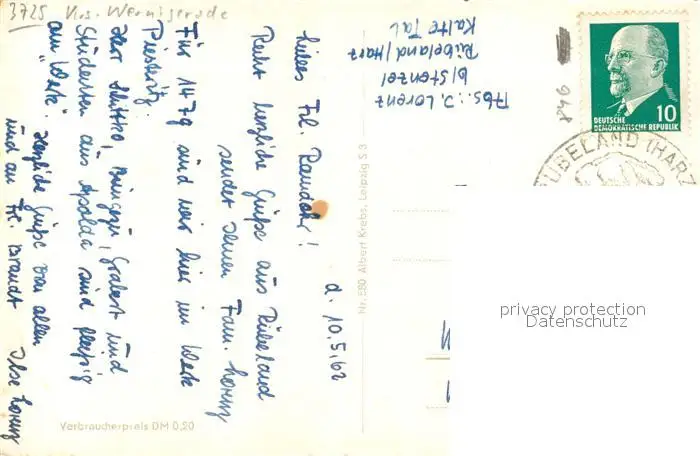 3725 Krs. Wernigerode
d. 10.5.62
Liebes Frl. Randahr!
Recht herzliche Grüße aus Rübeland
sendet Ihnen Fam. Lorenz
Für 1479 sind wir hier im Werk
Herr Mittko, Büngern, Grabert und
Studenten aus Apolda sind fleißig
am Werk. Herzliche Grüße von allen
und an Fr. Brandt Ilse Lorenz
Abs.: I. Lorenz
b/Stenzel
Rübeland/Harz
Kalte Tal
948
10
DEUTSCHE
DEMOKRATISCHE REPUBLIK
RÜBELAND (HARZ
Nr. E80 Albert Krebs, Leipzig S 3
Verbraucherpreis DM 0,20
privacy protection
Datenschutz